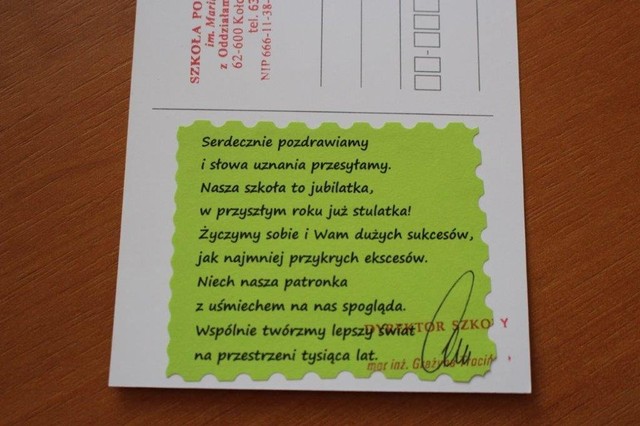 SZKOŁA PO
im. Mari
z Oddziałam
62-600 Koło
tel. 63
NIP 666-11-38-
Serdecznie pozdrawiamy
i słowa uznania przesyłamy.
Nasza szkoła to jubilatka,
w przyszłym roku już stulatka!
Życzymy sobie i Wam dużych sukcesów,
jak najmniej przykrych ekscesów.
Niech nasza patronka
z uśmiechem na nas spogląda.
Wspólnie twórzmy lepszy świat
na przestrzeni tysiąca lat.
DYREKTOR SZKO Y
mgr inż. Grażyna